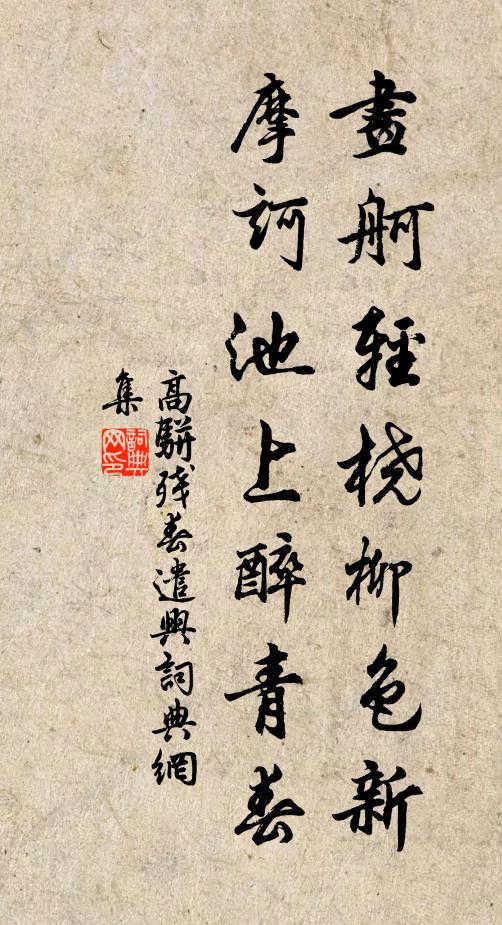 畫舸輕橈柳色新
摩訶池上醉青春
高駢殘春遣興詞典網
集
詞典
网印